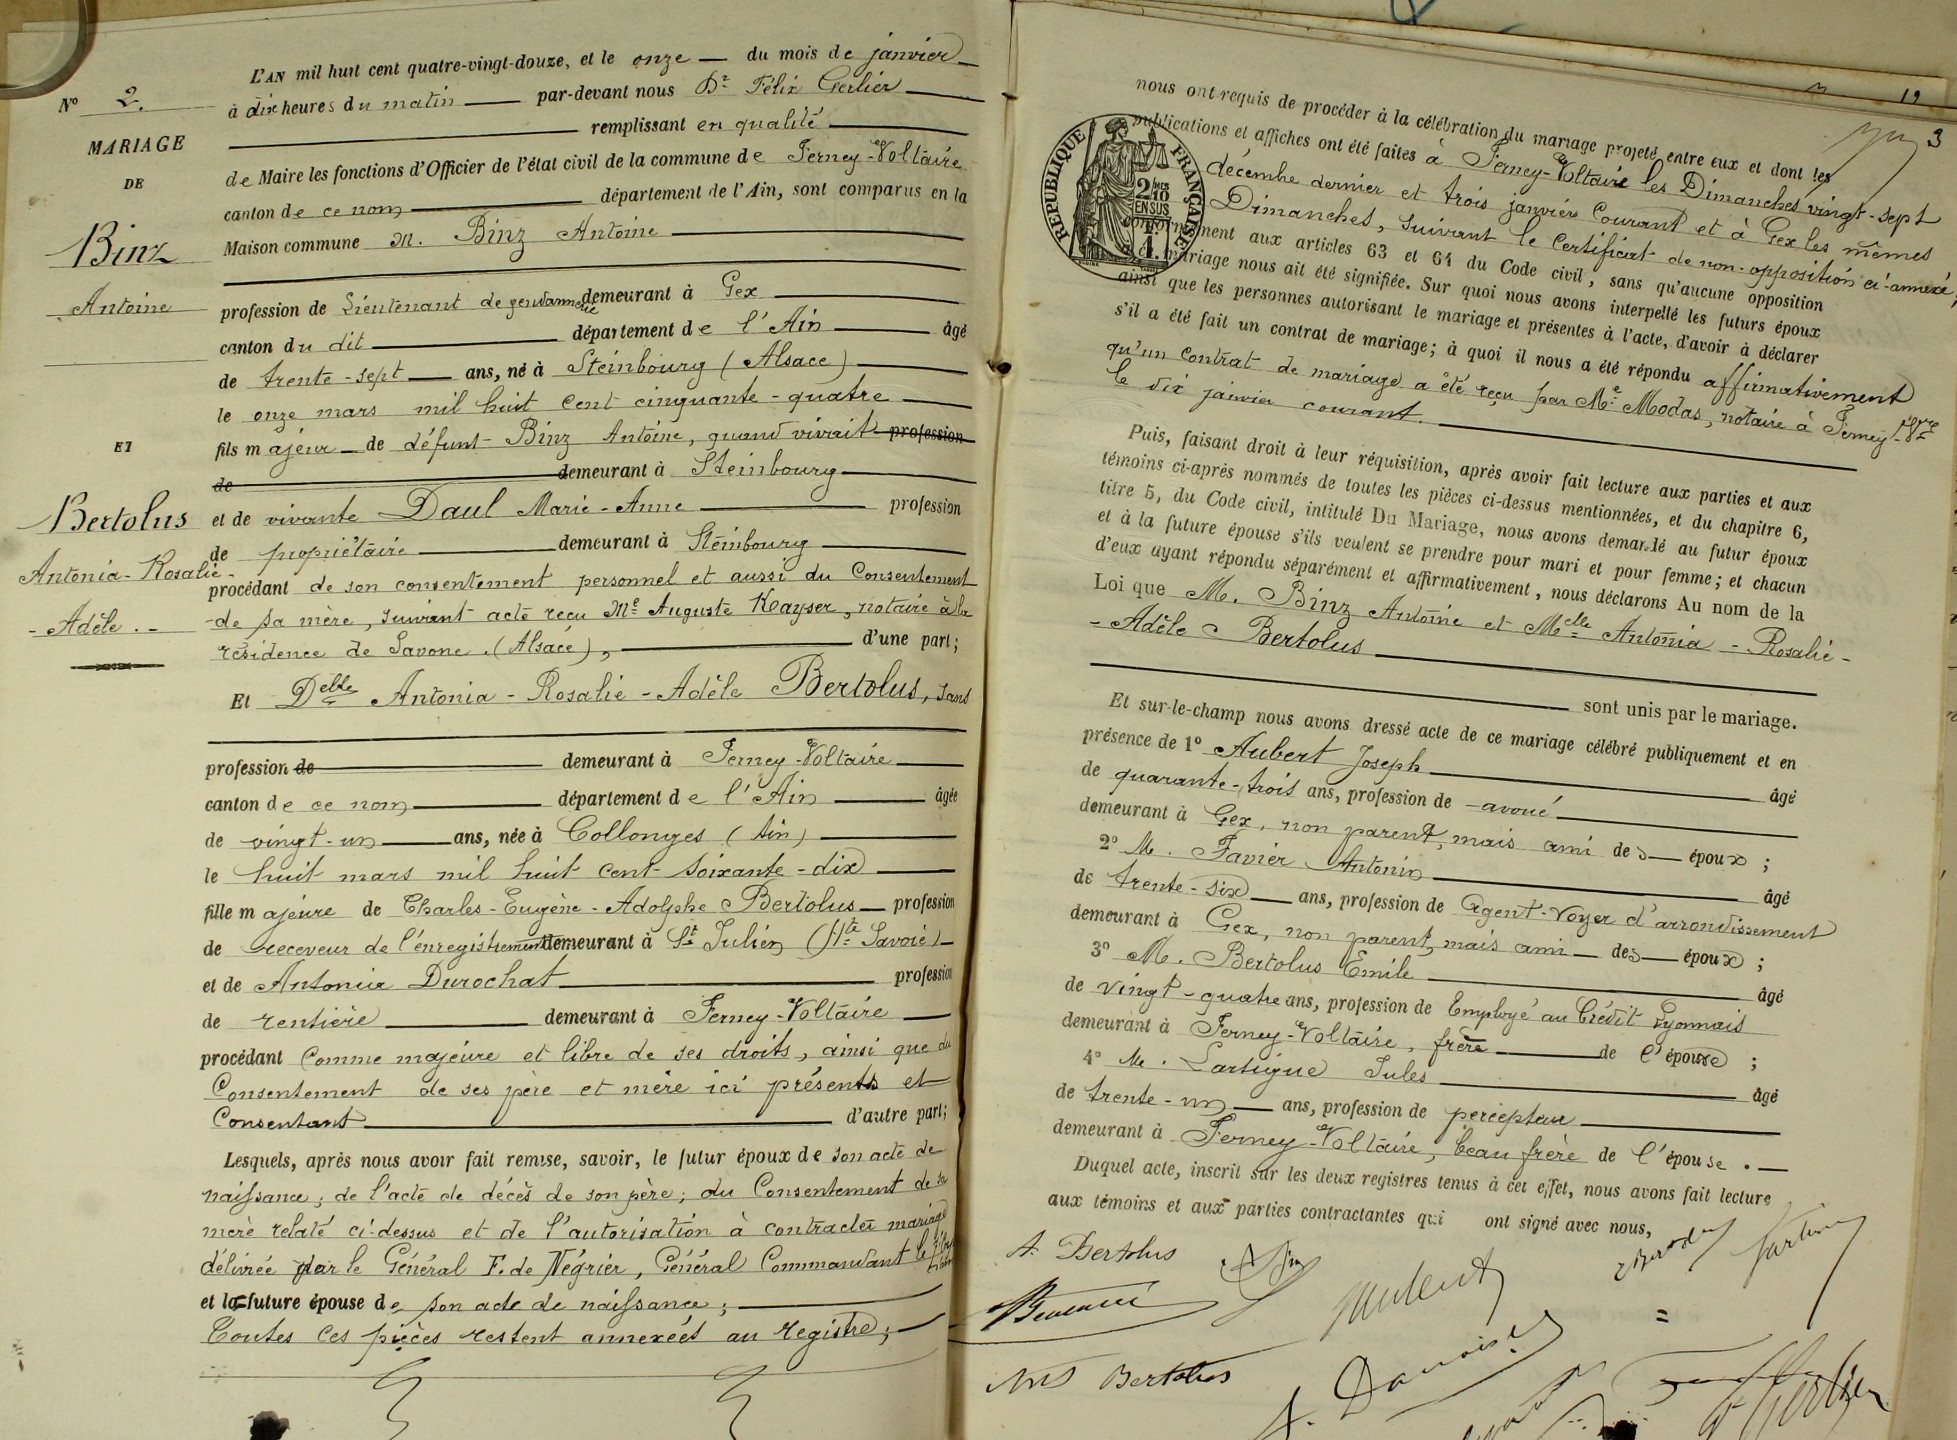 L'AN mil huit cent quatre-vingt-douze, et le onze du mois de janvier
N° 2.
à dix heures du matin par-devant nous Dr Félix Gerlier
MARIAGE
remplissant en qualité
DE
de Maire les fonctions d'Officier de l'état civil de la commune de Ferney-Voltaire
canton de ce nom département de l'Ain, sont comparus en la
Binz
Maison commune M. Binz Antoine
Antoine
profession de Lieutenant de gendarmerie demeurant à Gex
canton du dit département de l'Ain âgé
de trente-sept ans, né à Steinbourg (Alsace)
le onze mars mil huit cent cinquante-quatre
ET
fils majeur de défunt Binz Antoine, quand vivait profession
de demeurant à Steinbourg
Bertolus
et de vivante Daul Marie-Anne profession
de propriétaire demeurant à Steinbourg
Antonia-Rosalie-
procédant de son consentement personnel et aussi du Consentement
-Adèle.-
de sa mère, suivant acte reçu Me Auguste Kayser, notaire à la
résidence de Savone (Alsace), d'une part;
Et Delle Antonia-Rosalie-Adèle Bertolus, sans
profession de demeurant à Ferney-Voltaire
canton de ce nom département de l'Ain âgée
de vingt-un ans, née à Collonges (Ain)
le huit mars mil huit cent soixante-dix
fille majeure de Charles-Eugène-Adolphe Bertolus profession
de receveur de l'enregistrement demeurant à St Julien (Hte Savoie)
et de Antonia Durochat profession
de rentière demeurant à Ferney-Voltaire
procédant comme majeure et libre de ses droits, ainsi que du
Consentement de ses père et mère ici présents et
Consentant d'autre part;
Lesquels, après nous avoir fait remise, savoir, le futur époux de son acte de
naissance; de l'acte de décès de son père; du Consentement de sa
mère relaté ci-dessus et de l'autorisation à contracter mariage
délivrée par le Général F. de Négrier, Général Commandant le
et la future épouse de son acte de naissance;
Toutes ces pièces restent annexées au registre;
19
3
nous ont requis de procéder à la célébration du mariage projeté entre eux et dont les
publications et affiches ont été faites à Ferney-Voltaire les Dimanches vingt-sept
décembre dernier et trois janvier courant et à Gex les mêmes
Dimanches, suivant le certificat de non-opposition ci-annexé,
conformément aux articles 63 et 64 du Code civil, sans qu'aucune opposition
mariage nous ait été signifiée. Sur quoi nous avons interpellé les futurs époux
ainsi que les personnes autorisant le mariage et présentes à l'acte, d'avoir à déclarer
s'il a été fait un contrat de mariage; à quoi il nous a été répondu affirmativement
qu'un contrat de mariage a été reçu par Me Modas, notaire à Ferney-Vre
le dix janvier courant.
RÉPUBLIQUE FRANÇAISE
2 MES
10
EN SUS
Puis, faisant droit à leur réquisition, après avoir fait lecture aux parties et aux
témoins ci-après nommés de toutes les pièces ci-dessus mentionnées, et du chapitre 6,
titre 5, du Code civil, intitulé Du Mariage, nous avons demandé au futur époux
et à la future épouse s'ils veulent se prendre pour mari et pour femme; et chacun
d'eux ayant répondu séparément et affirmativement, nous déclarons Au nom de la
Loi que M. Binz Antoine et Melle Antonia-Rosalie-
-Adèle Bertolus
sont unis par le mariage.
Et sur-le-champ nous avons dressé acte de ce mariage célébré publiquement et en
présence de 1° Aubert Joseph
de quarante-trois ans, profession de avoué âgé
demeurant à Gex, non parent, mais ami des époux;
2° M. Favier Antonin
de trente-six ans, profession de Agent-Voyer d'arrondissement âgé
demeurant à Gex, non parent, mais ami des époux;
3° M. Bertolus Emile âgé
de vingt-quatre ans, profession de Employé au Crédit Lyonnais
demeurant à Ferney-Voltaire, frère de l'épouse;
4° M. Lartigue Jules âgé
de trente-un ans, profession de percepteur
demeurant à Ferney-Voltaire, beau frère de l'épouse.
Duquel acte, inscrit sur les deux registres tenus à cet effet, nous avons fait lecture
aux témoins et aux parties contractantes qui ont signé avec nous,
A. Bertolus
Bertolus
Gerlier